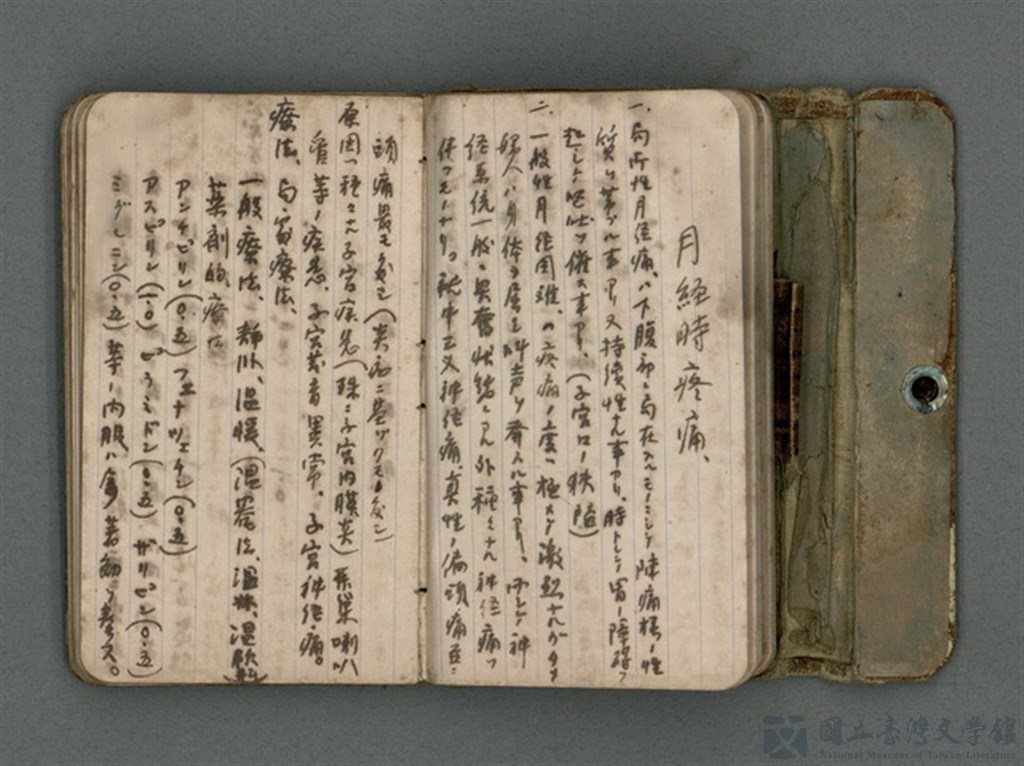 月経時疼痛、
一、局所性月経痛、ハ下腹部ニ局在スルモノニシテ陣痛様ノ性
質ヲ帯ブル事アリ又持続性ナル事アリ、時トシテ胃ノ障碍ヲ
起シテ嘔吐ヲ催ス事アリ、(子宮口ノ狭隘)
二、一般性月経困難、ハ疼痛ノ度ハ極メテ激烈ナルガタメ
婦人ハ身体ヲ屈シ叫声ヲ発スル事アリ、而シテ神
経系統一般ニ興奮状態シアル外種々ナル神経痛ヲ
伴フモノナリ。就中三叉神経痛、真性ノ偏頭痛
頭痛最モ多シ(炎症ニ基ヅクモノ多シ)
原因ハ種々ナル子宮疾患(殊ニ子宮内膜炎)卵巣喇叭
管等ノ疾患、子宮発育異常、子宮神経痛。
療法、局部療法、
一般療法、静臥、温暖、(温罨法、温
薬剤的療
アンチピリン(〇・五)フェナツェチン(〇・五)
アスピリン(一・〇)ピラミドン(〇・五)サリピン(〇・五)
ミグレニン(〇・五)等ノ内服ハ多